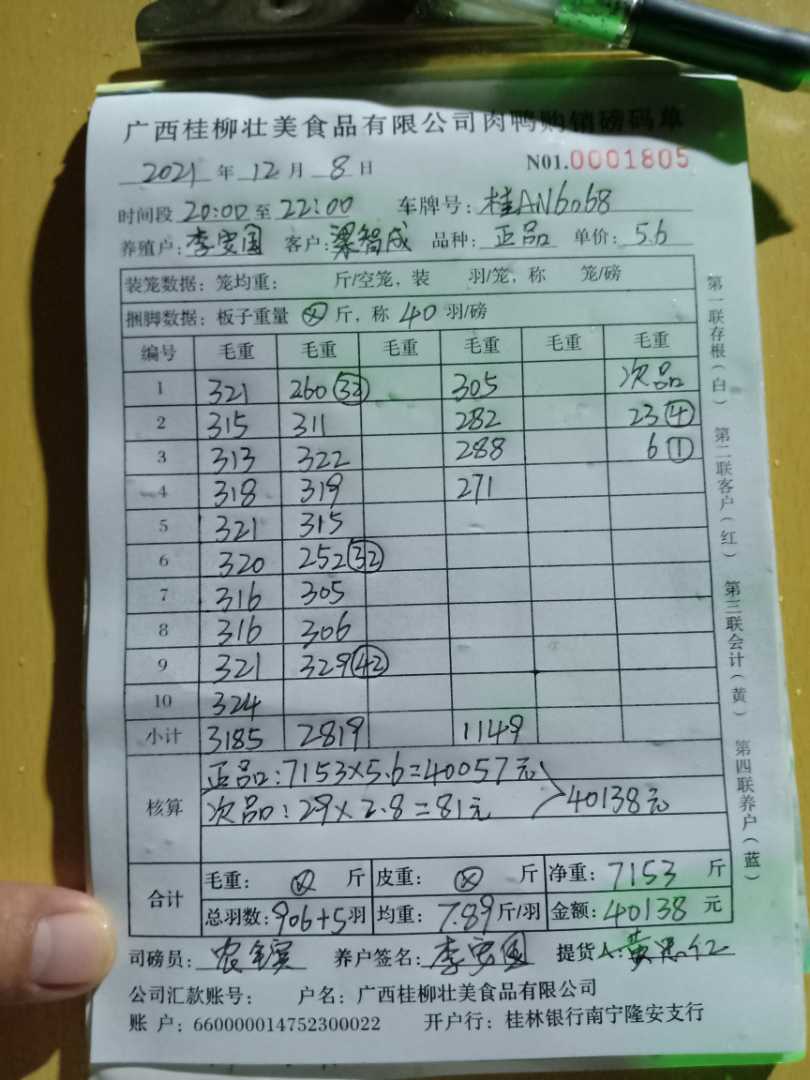 广西桂柳壮美食品有限公司肉鸭购销磅码单
2021 年 12 月 8 日 N01.0001805
时间段 20:00 至 22:00 车牌号: 桂AN6068
养殖户: 李安国 客户: 梁智成 品种: 正品 单价: 5.6
装笼数据: 笼均重: 斤/空笼, 装 羽/笼, 称 笼/磅
捆脚数据: 板子重量 ⊗ 斤, 称 40 羽/磅
编号 毛重 毛重 毛重 毛重 毛重 毛重
1 321 260 (32) 305 次品
2 315 311 282 23 (4)
3 313 322 288 6 (1)
4 318 319 271
5 321 315
6 320 252 (32)
7 316 305
8 316 306
9 321 329 (42)
10 324
小计 3185 2819 1149
正品: 7153×5.6=40057元
核算 次品: 29×2.8=81元 40138元
合计 毛重: ⊗ 斤 皮重: ⊗ 斤 净重: 7153 斤
总羽数: 906+5 羽 均重: 7.89 斤/羽 金额: 40138 元
司磅员: 农 养户签名: 李安国 提货人: 黄
公司汇款账号: 户名: 广西桂柳壮美食品有限公司
账 户: 660000014752300022 开户行: 桂林银行南宁隆安支行
第一联存根(白) 第二联客户(红) 第三联会计(黄) 第四联养户(蓝)